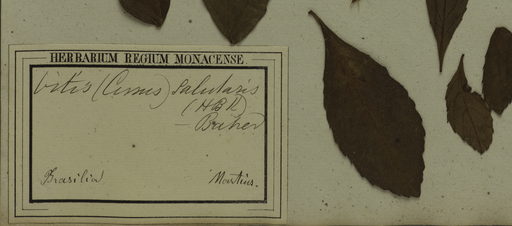 HERBARIUM REGIUM MONACENSE
Vitis (Cissus) salutaris
(HBK)
— Baker
Brasilia. Martius.